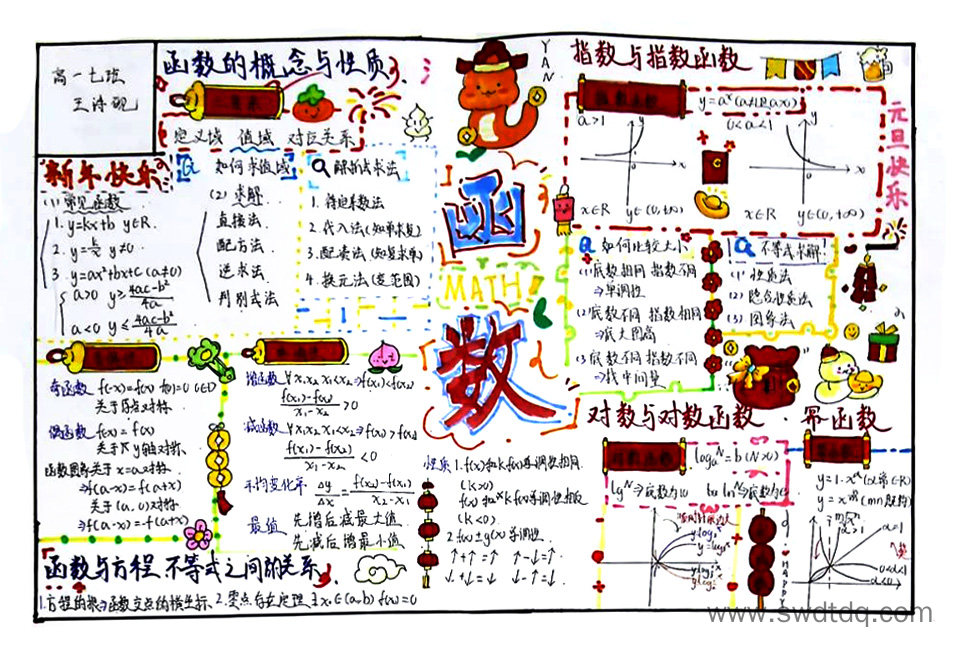 高一七班
王诗砚
函数的概念与性质
三要素
定义域 值域 对应关系
新年快乐
(1) 常见函数
1. y=kx+b y∈R
2. y=k/x y≠0
3. y=ax²+bx+c (a≠0)
a>0 y≥(4ac-b²)/4a
a<0 y≤(4ac-b²)/4a
Q 如何求值域
(2) 求解
直接法
配方法
逆求法
判别式法
Q 解析式求法
1. 待定系数法
2. 代入法(知单求复)
3. 配凑法(知复求单)
4. 换元法(变范围)
YAN
函
MATH
数
指数与指数函数
指数函数
y=aˣ(a≠1且a>0)
a>1
0<a<1
y
x
y
x
x∈R y∈(0,+∞)
x∈R y∈(0,+∞)
元旦快乐
Q 如何比较大小
(1)底数相同 指数不同
⇒单调性
(2)底数不同 指数相同
⇒底大图高
(3)底数不同 指数不同
⇒找中间量
Q 不等式求解!
(1) 性质法
(2) 隐含性质法
(3) 图象法
奇函数 f(-x)=f(x) f(0)=0 0∈D
关于原点对称
偶函数 f(x)=f(x)
关于y轴对称
函数图象关于x=a对称
⇒f(a-x)=f(a+x)
关于(a,0)对称
⇒f(a-x)=-f(a+x)
单调性
增函数 ∀x₁x₂ x₁<x₂⇒f(x₁)<f(x₂)
(f(x₁)-f(x₂))/(x₁-x₂)>0
减函数 ∀x₁x₂ x₁<x₂⇒f(x₁)>f(x₂)
(f(x₁)-f(x₂))/(x₁-x₂)<0
平均变化率 Δy/Δx=(f(x₂)-f(x₁))/(x₂-x₁)
最值 先增后减最大值
先减后增最小值
性质 1. f(x)和kf(x)单调性相同
(k>0)
f(x)和kf(x)单调性相反
(k<0)
2. f(x)±g(x)单调性
↑+↑=↑ ↑-↓=↑
↓+↓=↓ ↓-↑=↓
对数与对数函数
对数函数
logₐN=b (N>0)
lgN⇒底数为10
lnN⇒底数为e
y=log
y=log
y=log
y=log
幂函数
幂函数
a>1
a<0
HAPPY
函数与方程、不等式之间的关系
1.方程的根⇒函数交点的横坐标、2.零点存在定理 ∃x₀∈(a,b) f(x₀)=0
www.swdtdq.com